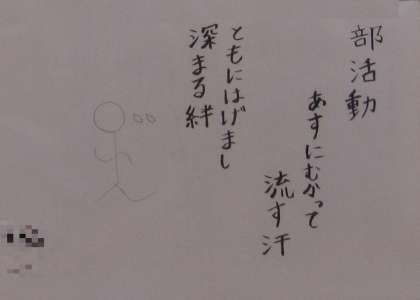 部活動
あすにむかって
流す汗
ともにはげまし
深まる絆